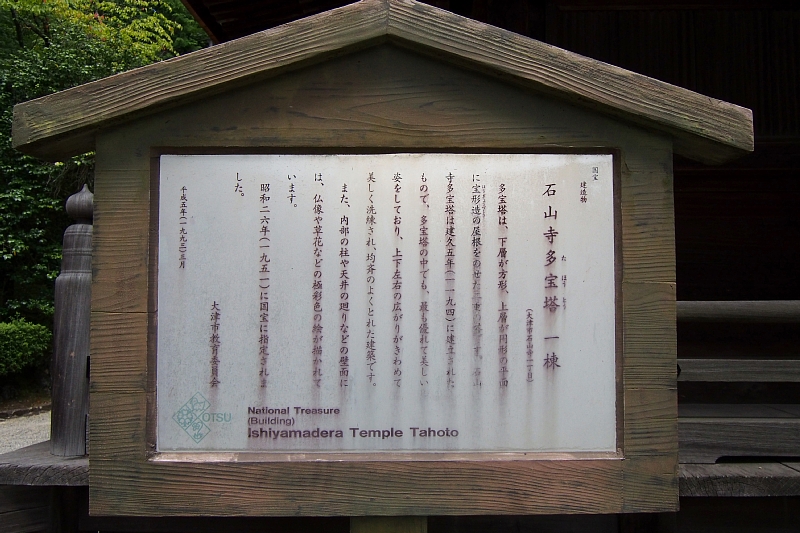 国宝
建造物
石山寺多宝塔 一棟
た ほう とう
(大津市石山寺一丁目)
多宝塔は、下層が方形、上層が円形の平面
に宝形造の屋根をのせた二重の塔です。石山
ほうぎょうづくり
寺多宝塔は建久五年(一一九四)に建立された
もので、多宝塔の中でも、最も優れて美しい
姿をしており、上下左右の広がりがきわめて
美しく洗練され、均斉のよくとれた建築です。
また、内部の柱や天井の廻りなどの壁面に
は、仏像や草花などの極彩色の絵が描かれて
います。
昭和二六年(一九五一)に国宝に指定されま
した。
大津市教育委員会
平成五年(一九九三)三月
OTSU
National Treasure
(Building)
Ishiyamadera Temple Tahoto